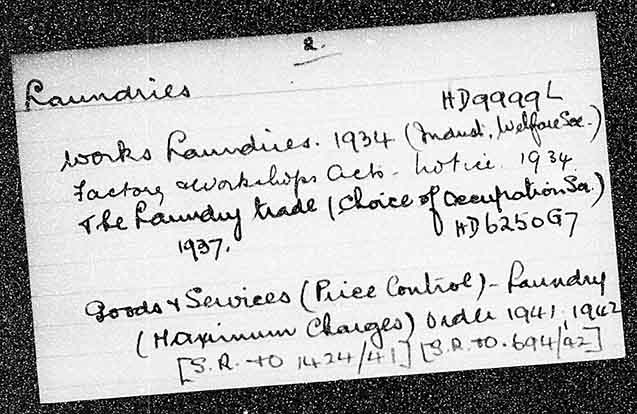 2.
Laundries
HD9999L
Works Laundries. 1934 (Indust. Welfare Soc.)
Factory & Workshops Acts - Notice. 1934
The Laundry trade (Choice of Occupation Ser.)
1937. HD6250G7
Goods & Services (Price Control) - Laundry
(Maximum Charges) Order 1941, 1942
[S.R. + O 1424/41] [S.R. + O. 694/42]